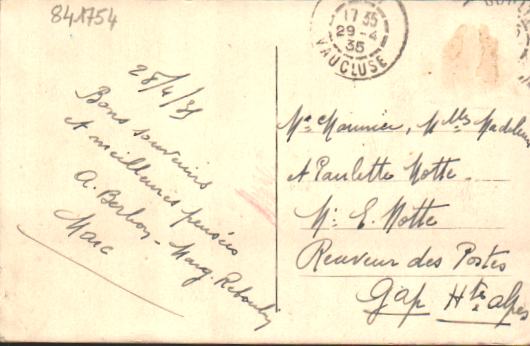 841754
17 35
29-4
35
VAUCLUSE
28/4/35
Bons souvenirs
et meilleures pensées
A. Berbon - Marg. Reboulin
Marc
Me Mounier, Mlles Madeleine
et Paulette Motte
Mr E. Motte
Receveur des Postes
Gap Htes Alpes